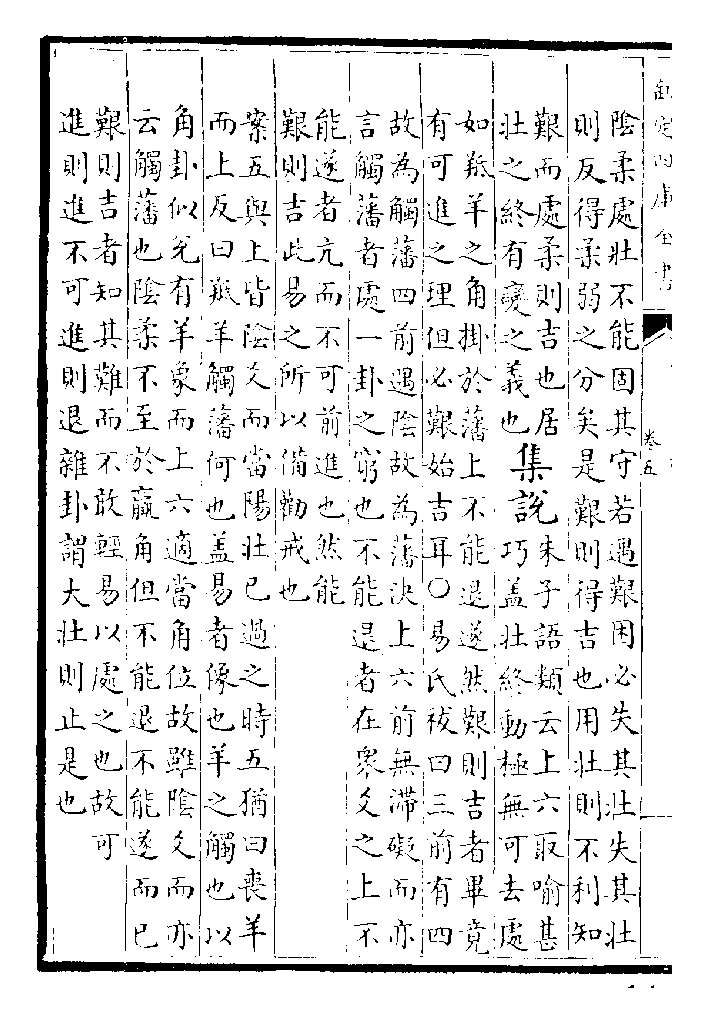 欽定四庫全書
卷五
陰柔處壯不能固其守若遇艱困必失其壯失其壯
則反得柔弱之分矣是艱則得吉也用壯則不利知
艱而處柔則吉也居
壯之終有變之義也
集說
朱子語類云上六取喻甚
巧蓋壯終動極無可去處
如羝羊之角掛於藩上不能退遂然艱則吉者畢竟
有可進之理但必艱始吉耳○易氏祓曰三前有四
故為觸藩四前遇陰故為藩決上六前無滯礙而亦
言觸藩者處一卦之窮也不能退者在衆爻之上不
能遂者亢而不可前進也然能
艱則吉此易之所以備勸戒也
案五與上皆陰爻而當陽壯已過之時五猶曰喪羊
而上反曰羝羊觸藩何也蓋易者像也羊之觸也以
角卦似兌有羊象而上六適當角位故雖陰爻而亦
云觸藩也陰柔不至於羸角但不能退不能遂而已
艱則吉者知其難而不敢輕易以處之也故可
進則進不可進則退雜卦謂大壯則止是也